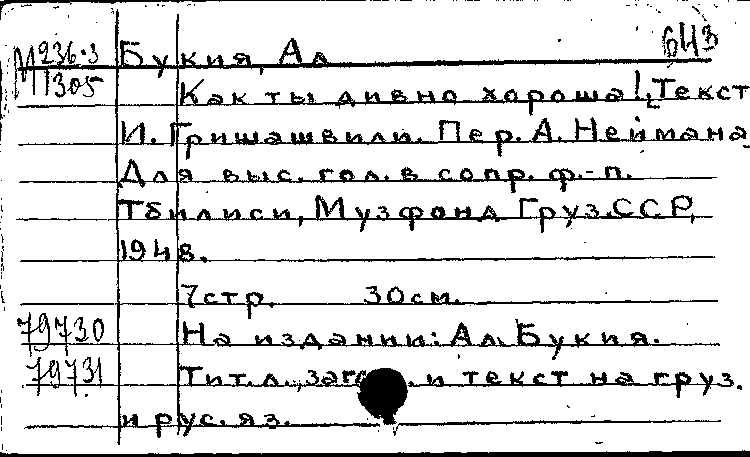 М236.3 Букия, Ал 643
М1305 Как ты дивно хороша! [Текст
И. Гришашвили. Пер. А. Неймана]
Для выс. гол. в сопр. ф.-п.
Тбилиси, Музфонд Груз.ССР,
1948.
7 стр. 30 см.
79730 На издании: Ал. Букия.
79731 Тит. л., заг и текст на груз.
и рус. яз.